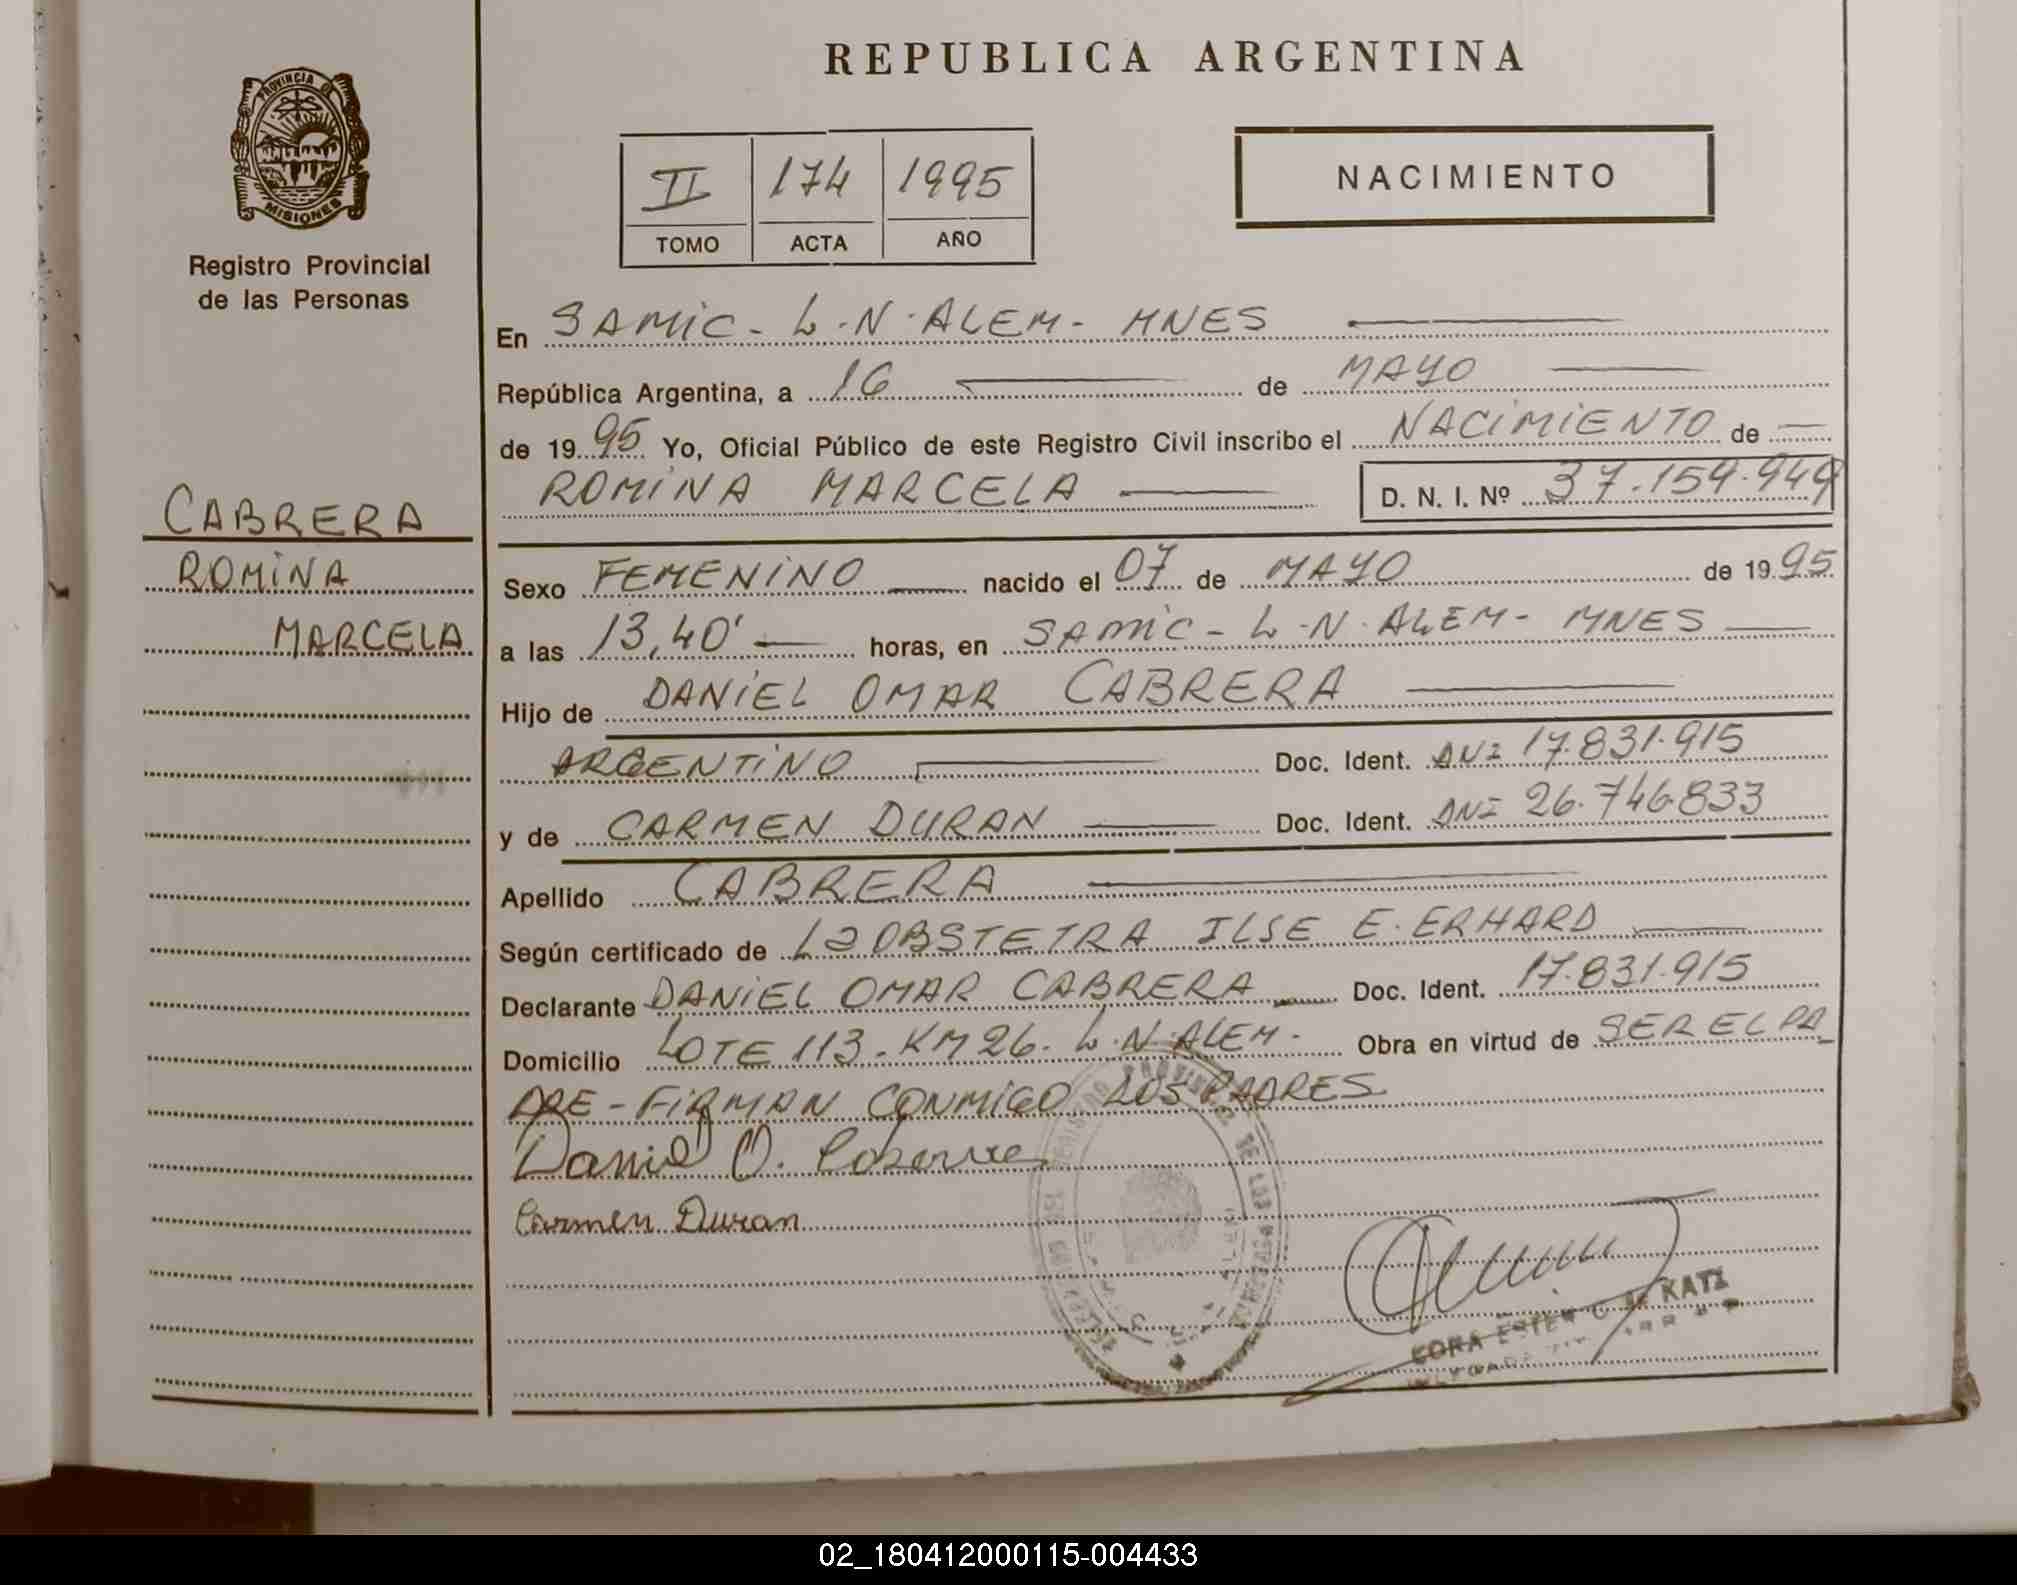 REPUBLICA ARGENTINA
PROVINCIA DE
MISIONES
Registro Provincial
de las Personas
II 174 1995
TOMO ACTA AÑO
NACIMIENTO
En SAMIC - L.N. ALEM - MNES
República Argentina, a 16 de MAYO
de 1995 Yo, Oficial Público de este Registro Civil inscribo el NACIMIENTO de
ROMINA MARCELA D. N. I. Nº 37.159.949
CABRERA
ROMINA
MARCELA
Sexo FEMENINO nacido el 07 de MAYO de 1995
a las 13,40' horas, en SAMIC - L.N. ALEM - MNES
Hijo de DANIEL OMAR CABRERA
ARGENTINO Doc. Ident. DNI 17.831.915
y de CARMEN DURAN Doc. Ident. DNI 26.746.833
Apellido CABRERA
Según certificado de La OBSTETRA ILSE E. ERHARD
Declarante DANIEL OMAR CABRERA Doc. Ident. 17.831.915
Domicilio LOTE 113 - KM 26 - L.N. ALEM - Obra en virtud de SER EL PA
DRE - FIRMAN CONMIGO LOS PADRES
Daniel O. Cabrera
Carmen Duran
DE KATZ
02_180412000115-004433